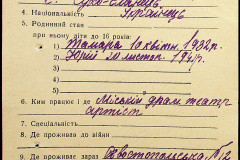 4. Національність Українець
5. Родинний стан
при ньому діти до 16 років:
1) Тамара 10 квітн. 1932р.
2) Юрій 20 листоп. 1941р.
3)
4)
5)
6. Ким працює і де Міський драм. театр
артіст
7. Спеціяльність
8. Де проживав до війни
9. Де проживає зараз